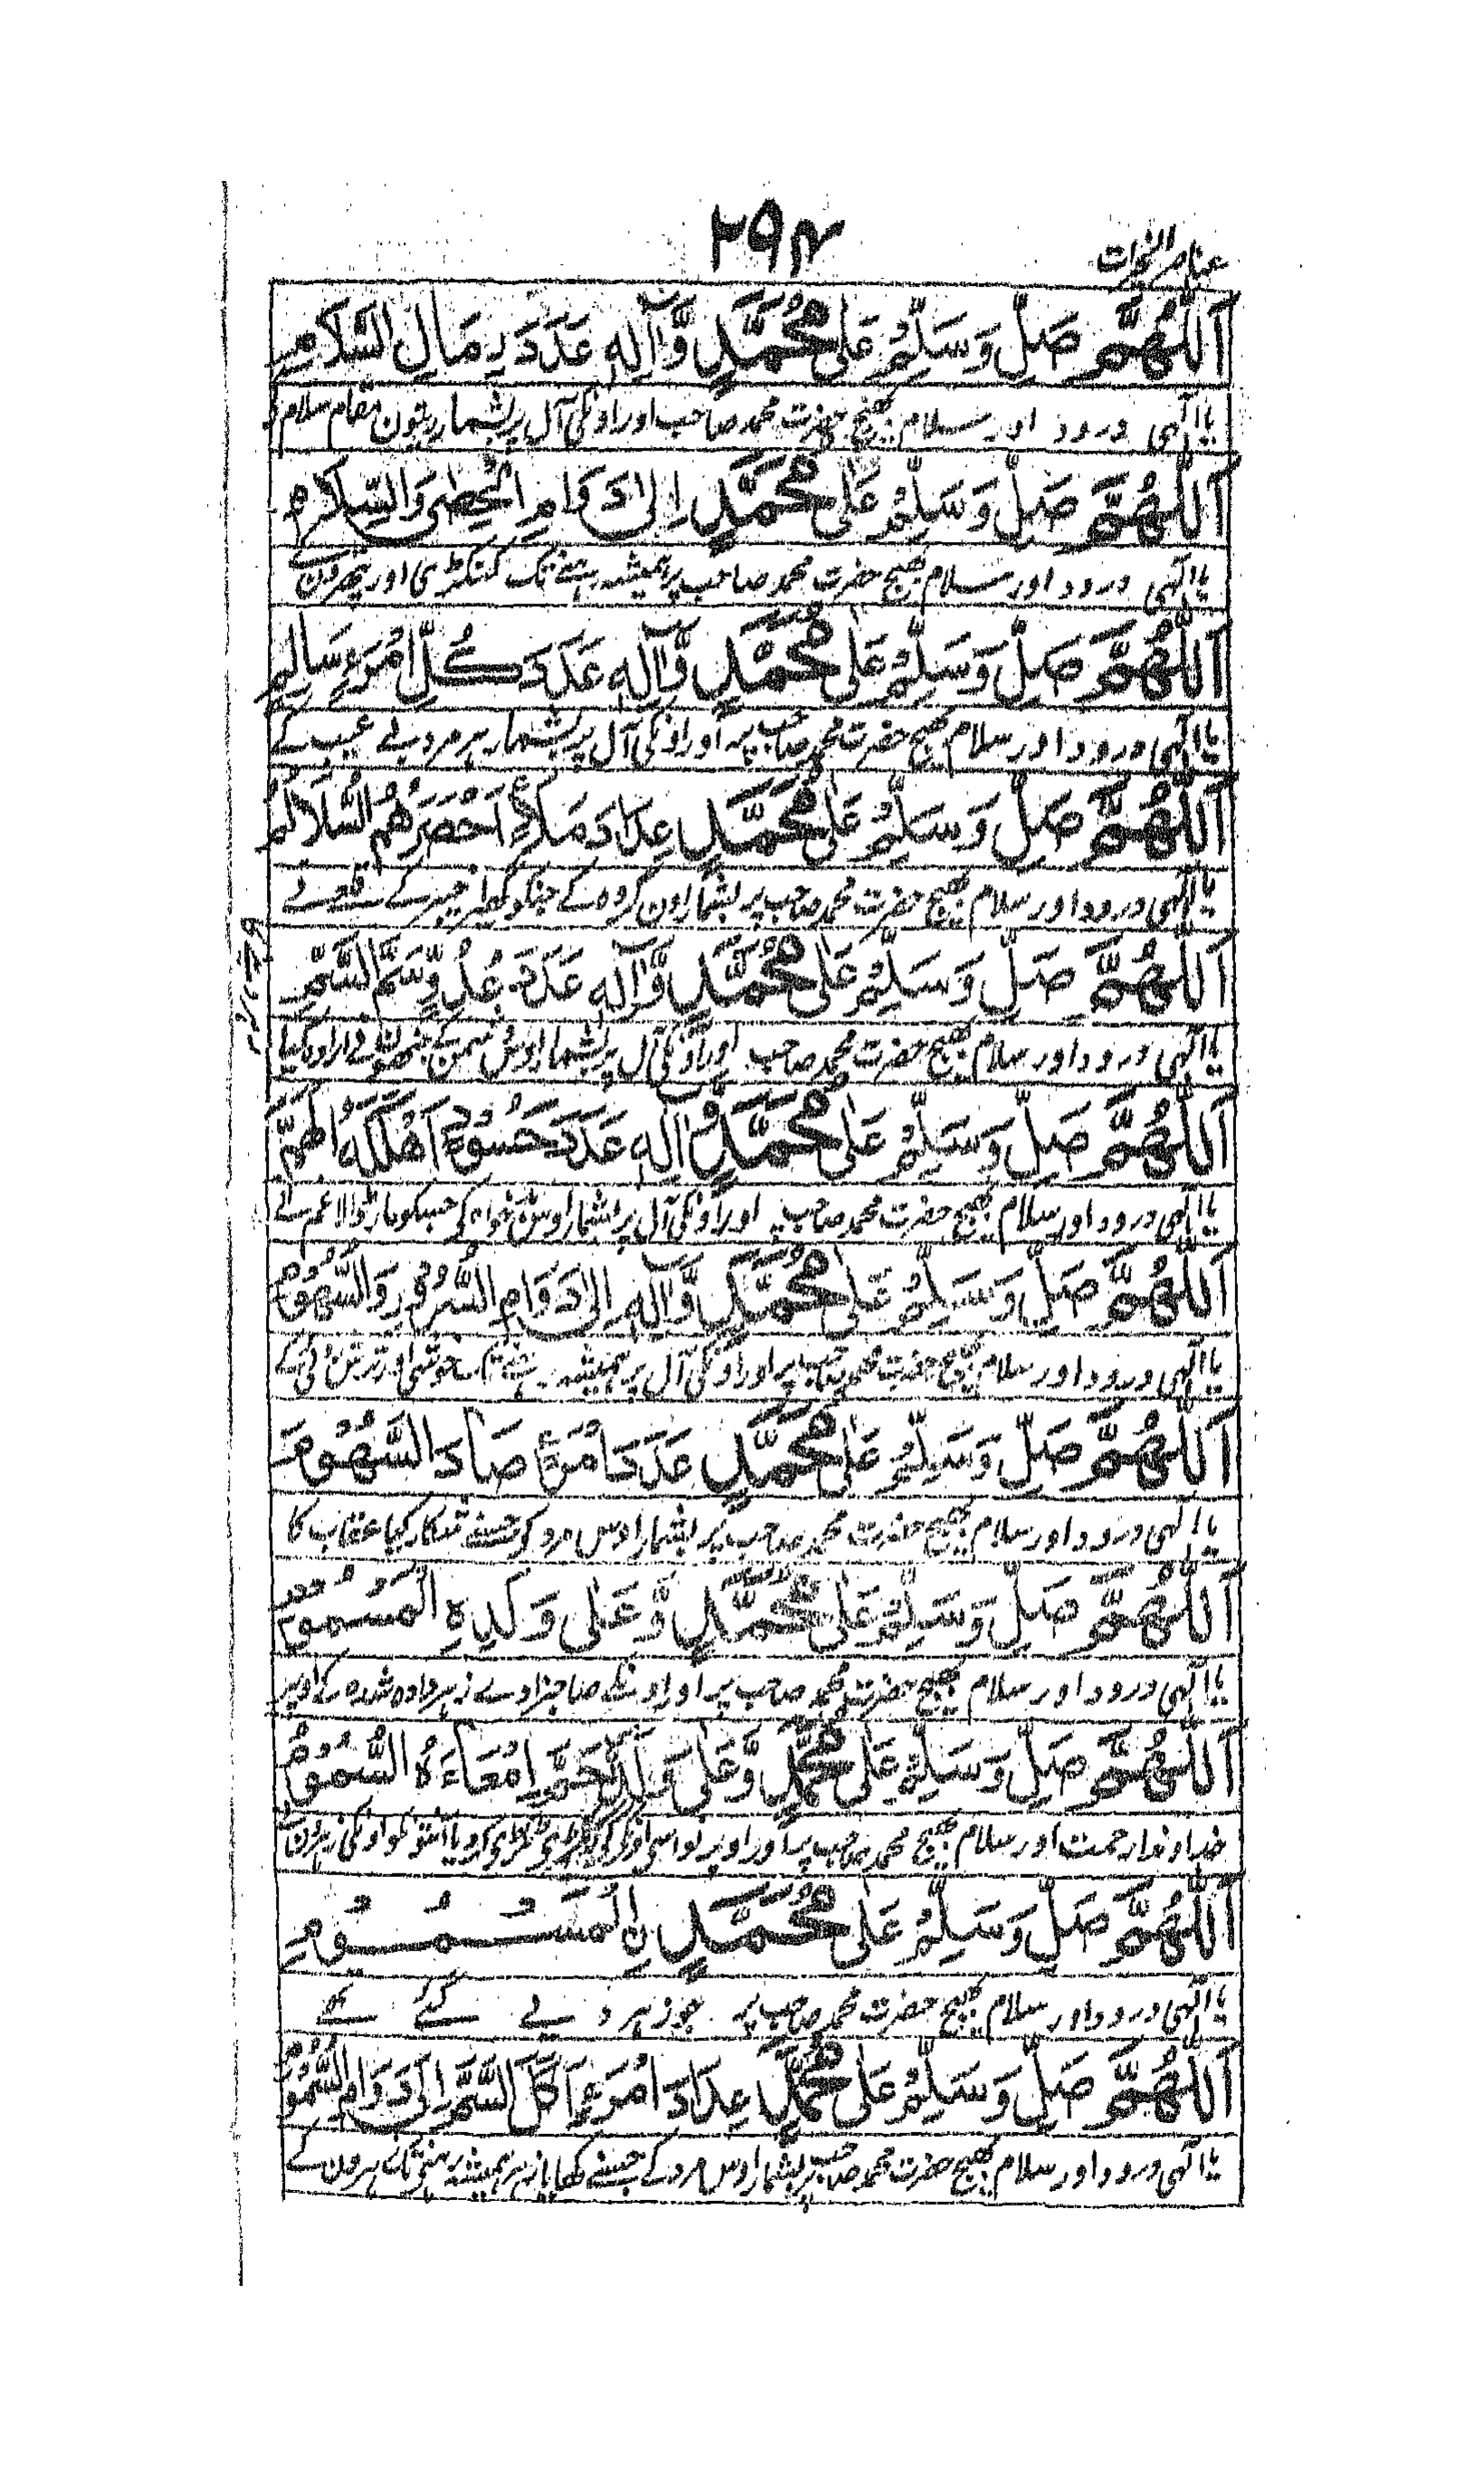 ۲۹۴
عناصر الخیرات
اَللّٰهُمَّ صَلِّ وَسَلِّمْ عَلٰی مُحَمَّدٍ وَّاٰلِهٖ عَدَدَ رِمَالِ السَّلَامِ
یا الٰہی درود اور سلام بھیج حضرت محمد صاحب اور اونکی آل پر بشمار ریتون مقام سلام
اَللّٰهُمَّ صَلِّ وَسَلِّمْ عَلٰی مُحَمَّدٍ اِلٰی دَوَامِ الْحَصٰی وَالسِّلَامِ
یا الٰہی درود اور سلام بھیج حضرت محمد صاحب پر ہمیشہ رہنے تک کنکڑی اور پتھرون کے
اَللّٰهُمَّ صَلِّ وَسَلِّمْ عَلٰی مُحَمَّدٍ وَّاٰلِهٖ عَدَدَ كُلِّ امْرَءٍ سَالِمٍ
یا الٰہی درود اور سلام بھیج حضرت محمد صاحب پر اور اونکی آل پر بشمار ہر مرد بے عیب کے
اَللّٰهُمَّ صَلِّ وَسَلِّمْ عَلٰی مُحَمَّدٍ عِدَادَ مَلَاءٍ اَحْضَرَهُمُ السَّلَالِمُ
یا الٰہی درود اور سلام بھیج حضرت محمد صاحب پر بشمار اون گروہ کے جنکو خیبر کے قلعے نے
اَللّٰهُمَّ صَلِّ وَسَلِّمْ عَلٰی مُحَمَّدٍ وَّاٰلِهٖ عَدَدَ عَدُوٍّ سَمَّ السَّمَّ
یا الٰہی درود اور سلام بھیج حضرت محمد صاحب اور اونکی آل پر بشمار اوس دشمن کے ارادہ کیا
اَللّٰهُمَّ صَلِّ وَسَلِّمْ عَلٰی مُحَمَّدٍ وَّاٰلِهٖ عَدَدَ حَسُوْدٍ اَهْلَكَهُ الْهَمُّ
یا الٰہی درود اور سلام بھیج حضرت محمد صاحب پر اور اونکی آل پر بشمار اوس بدخواہ کی جسکو مار ڈالا غم نے
اَللّٰهُمَّ صَلِّ وَسَلِّمْ عَلٰی مُحَمَّدٍ وَّاٰلِهٖ اِلٰی دَوَامِ السُّرُوْرِ وَالسُّهُوْمِ
یا الٰہی درود اور سلام بھیج حضرت محمد صاحب پر اور اونکی آل پر ہمیشہ رہنے تک خوشی اور ترش روئی کے
اَللّٰهُمَّ صَلِّ وَسَلِّمْ عَلٰی مُحَمَّدٍ عَدَدَ امْرَءٍ صَادَ السَّهُوْمَ
یا الٰہی درود اور سلام بھیج حضرت محمد صاحب پر بشمار اوس مرد کو جسنے شکار کیا عقاب کا
اَللّٰهُمَّ صَلِّ وَسَلِّمْ عَلٰی مُحَمَّدٍ وَّعَلٰی وَلَدِهِ الْمَسْمُوْمِ
یا الٰہی درود اور سلام بھیج حضرت محمد صاحب پر اور اونکے صاحبزادے زہر دادہ شدہ کے اوپر
اَللّٰهُمَّ صَلِّ وَسَلِّمْ عَلٰی مُحَمَّدٍ وَّعَلٰی وَلَدٍ اَمْعَاءَهُ السُّمُوْمُ
خداوندا رحمت اور سلام بھیج محمد صاحب پر اور اوپر نواسی اونکی ٹکڑی ٹکڑی کر دیا اونکی زہرون نے
اَللّٰهُمَّ صَلِّ وَسَلِّمْ عَلٰی مُحَمَّدٍ نِ الْمَسْمُوْمِ
یا الٰہی درود اور سلام بھیج حضرت محمد صاحب پر جو زہر دیے گئے تھے
اَللّٰهُمَّ صَلِّ وَسَلِّمْ عَلٰی مُحَمَّدٍ عِدَادَ امْرَءٍ اَكَلَ السَّمَّ اِلٰی دَوَامِ السُّمُوْمِ
یا الٰہی درود اور سلام بھیج حضرت محمد صاحب پر بشمار اوس مرد کے جسنے کھایا زہر ہمیشہ رہنے تک زہرون کے